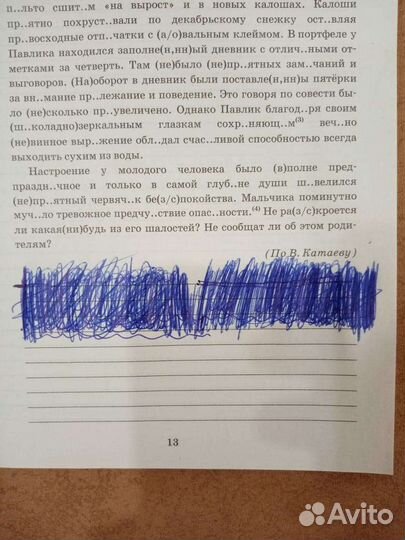 п..льто сшит..м «на вырост» и в новых калошах. Калоши
пр..ятно похруст..вали по декабрьскому снежку ост..вляя
пр..восходные отп..чатки с (а/о)вальным клеймом. В портфеле у
Павлика находился заполне(н,нн)ый дневник с отлич..ными от-
метками за четверть. Там (не)было (не)пр..ятных зам..чаний и
выговоров. (На)оборот в дневник были поставле(н,нн)ы пятёрки
за вн..мание пр..лежание и поведение. Это говоря по совести бы-
ло (не)сколько пр..увеличено. Однако Павлик благод..ря своим
(ш..коладно)зеркальным глазкам сохр..няющ..м(3) веч..но
(не)винное выр..жение обл..дал счас..ливой способностью всегда
выходить сухим из воды.
Настроение у молодого человека было (в)полне пред-
праздн..чное и только в самой глуб..не души ш..велился
(не)пр..ятный червяч..к бе(з/с)покойства. Мальчика поминутно
муч..ло тревожное предчу..ствие опас..ности.(4) Не ра(з/с)кроется
ли какая(ни)будь из его шалостей? Не сообщат ли об этом роди-
телям?
(По В. Катаеву)
13
Avito